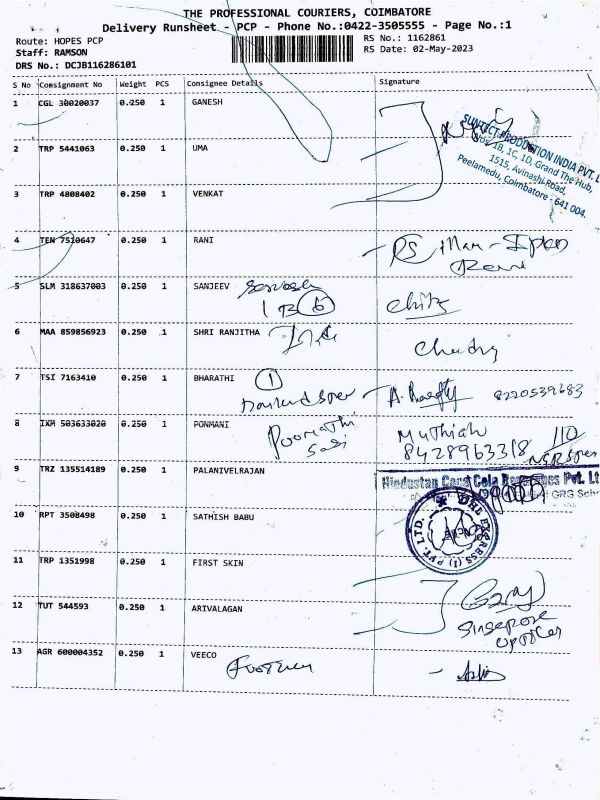 THE PROFESSIONAL COURIERS, COIMBATORE
Delivery Runsheet - PCP - Phone No.:0422-3505555 - Page No.:1
Route: HOPES PCP
RS No.: 1162861
Staff: RAMSON
RS Date: 02-May-2023
DRS No.: DCJB116286101
S No Consignment No Weight PCS Consignee Details Signature
1 CGL 30020037 0.250 1 GANESH
SUNTECT PRODUCTION INDIA PVT. L
No. 1B, 1C, 1D, Grand The Hub,
1515, Avinashi Road,
Peelamedu, Coimbatore - 641 004.
2 TRP 5441063 0.250 1 UMA
3 TRP 4808402 0.250 1 VENKAT
4 TEN 7510647 0.250 1 RANI
RS
5 SLM 318637003 0.250 1 SANJEEV
6 MAA 859856923 0.250 1 SHRI RANJITHA
7 TSI 7163410 0.250 1 BHARATHI 1
8220539683
8 IXM 503633020 0.250 1 PONMANI
Muthiah
8428963318 110
9 TRZ 135514189 0.250 1 PALANIVELRAJAN
Hindustan Coca Cola Beverages Pvt. Lt
GRG Sch
10 RPT 3508498 0.250 1 SATHISH BABU
DHL EXPRESS (I) PVT. LTD.
11 TRP 1351998 0.250 1 FIRST SKIN
12 TUT 544593 0.250 1 ARIVALAGAN
Singapore
13 AGR 600004352 0.250 1 VEECO